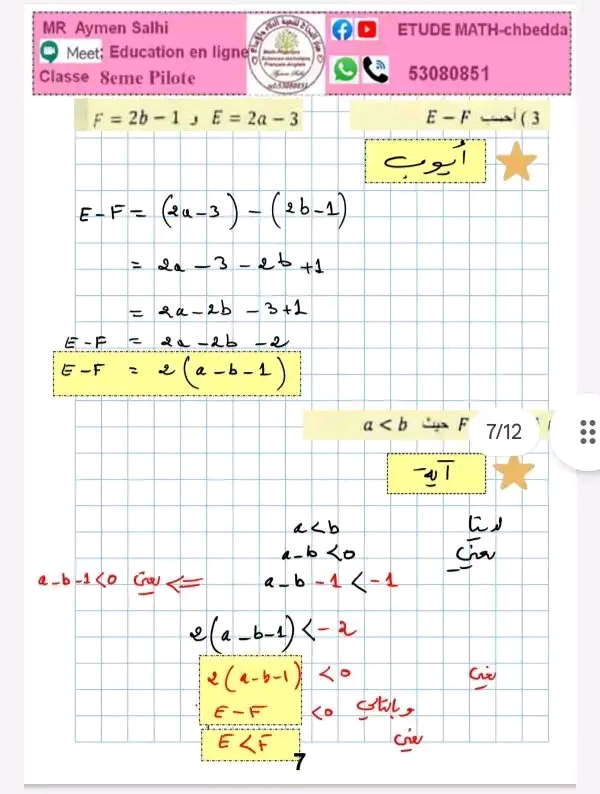 MR Aymen Salhi
Meet: Education en ligne
Classe 8eme Pilote
ETUDE MATH-chbedda
53080851
3) أحسب E – F
F = 2b – 1 و E = 2a – 3
أيوب
E - F = (2a - 3) - (2b - 1)
= 2a - 3 - 2b + 1
= 2a - 2b - 3 + 1
E - F = 2a - 2b - 2
E - F = 2(a - b - 1)
F حيث a < b
7/12
آية
لدينا a < b
يعني a - b < 0
a - b - 1 < -1 => يعني a - b - 1 < 0
2(a - b - 1) < -2
يعني 2(a - b - 1) < 0
وبالتالي E - F < 0
يعني E < F
7